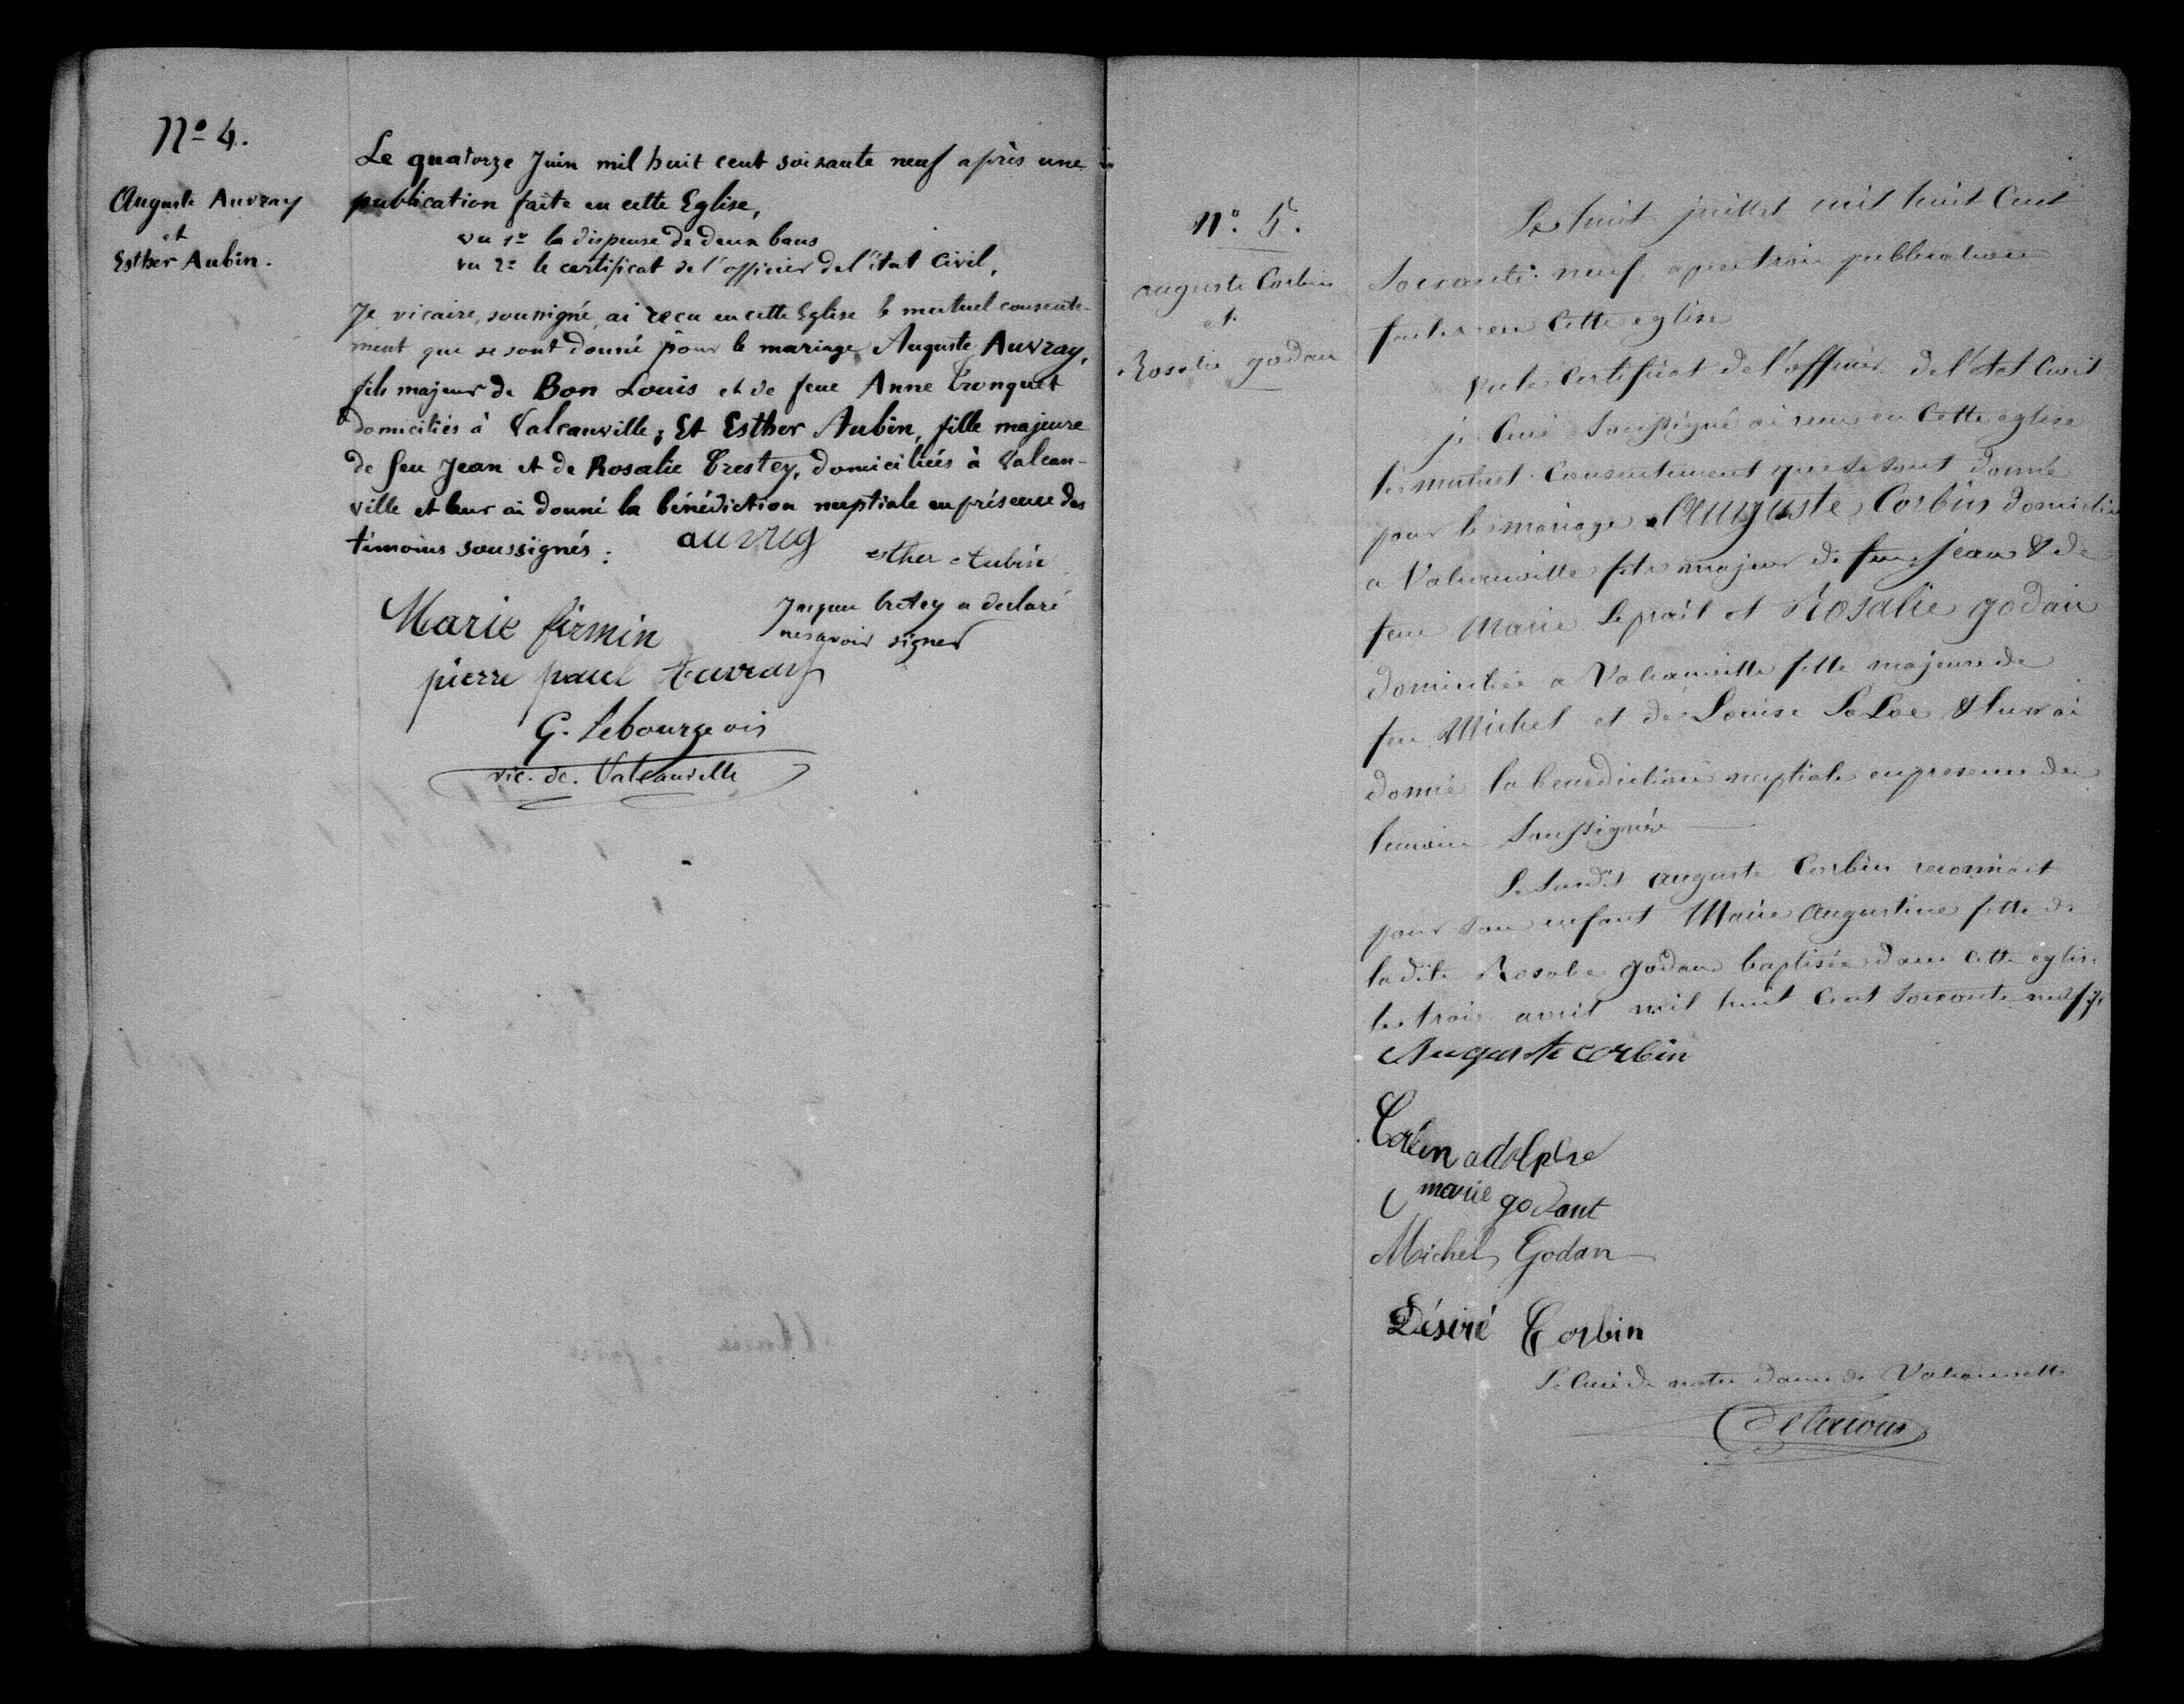 No 4.
Auguste Auvray
et
Esther Aubin.
Le quatorze Juin mil huit cent soixante neuf après une
publication faite en cette Eglise,
vu 1o la dispense de deux bans
vu 2o le certificat de l'officier de l'état civil,
Je vicaire, soussigné, ai reçu en cette Eglise le mutuel consente-
ment que se sont donné pour le mariage Auguste Auvray,
fils majeur de Bon Louis et de feue Anne Tronquet
domiciliés à Valcanville; Et Esther Aubin, fille majeure
de feu Jean et de Rosalie Trestey, domiciliés à Valcan-
ville et leur ai donné la bénédiction nuptiale en présence des
témoins soussignés:
auvray
esther Aubin
Marie firmin
Jacques tretey a déclaré
ne savoir signer
pierre paul Auvray
G. Lebourgeois
vic. de. Valcanville
No. 5.
auguste Corbin
et
Rosalie godan
Le huit juillet mil huit Cent
Soixante neuf après trois publications
faites en Cette eglise
Vu le Certificat de l'officier de l'état Civil
je Curé Soussigné ai reçu en Cette eglise
le mutuel Consentement que se sont donné
pour le mariage Auguste Corbin domicilié
a Valcanville fils majeur de feu jean & de
feue Marie Leprêt et Rosalie godan
domiciliée a Valcanville fille majeure de
feu Michel et de Louise & leur ai
donné la benediction nuptiale en presence des
temoins Soussignés
Le Susdit auguste Corbin reconnait
pour son enfant Marie Augustine fille de
ladite Rosalie godan baptisée dans cette eglise
le trois avril mil huit Cent soixante neuf
Auguste corbin
Corbin adolphe
marie godant
Michel Godan
Désiré Corbin
Le Curé de notre dame de Valcanville